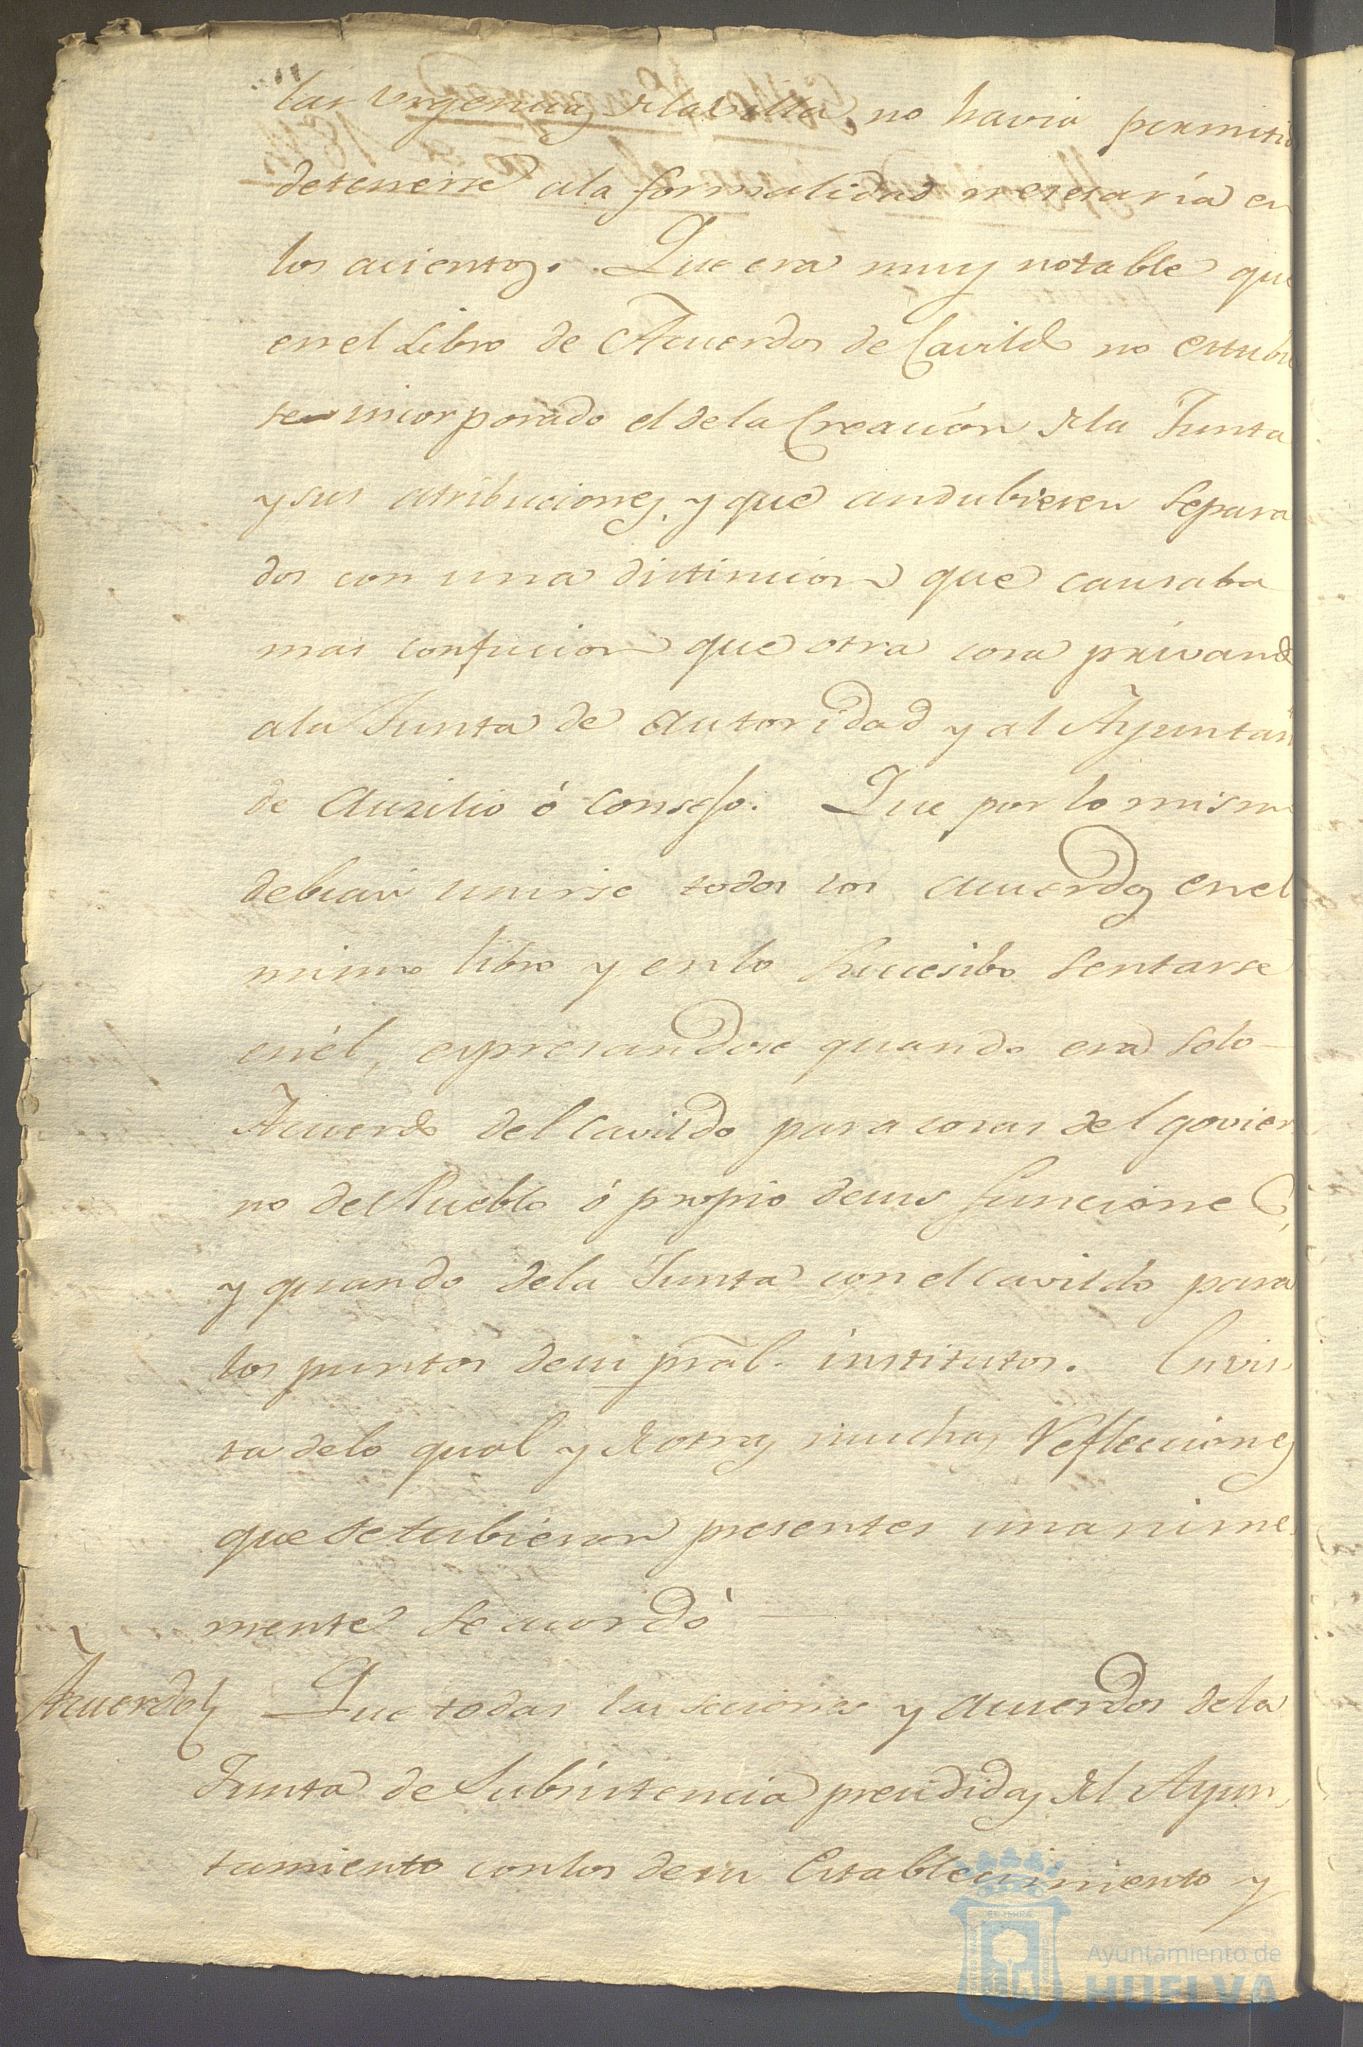 las urgencias de la villa no havia permitid
detenerse a la formalidad nesesaria en
los acientos. Que era muy notable que
en el Libro de Acuerdos de Cavildo no estubie
se incorporado el de la Creacion de la Junta
y sus atribuciones, y que andubiesen separa
dos con una distincion que causaba
mas confucion que otra cosa privando
a la Junta de autoridad y al Ayuntam
de Auxilio ó consejo. Que por lo mismo
debian unirse todos los acuerdos en el
mismo libro y en lo succesibo sentarse
en él, expresandose quando era solo
Acuerdo del Cavildo para cosas del govier
no del Pueblo ó propio de sus funciones,
y quando de la Junta con el cavildo para
los puntos de su pral. institutos. En vis
ta de lo qual y de otras muchas reflecciones
que se tubieron presentes unanime
mente se acordó
Acuerdos Que todas las seciones y acuerdos de la
Junta de Subsistencia presididas del Ayun
tamiento con los de su Establecimiento y
Ayuntamiento de
HUELVA